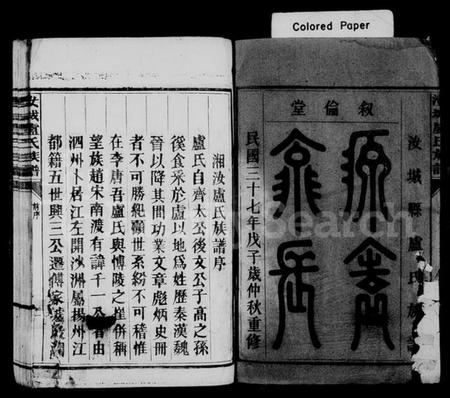 Colored Paper
汝城縣盧氏族譜
源遠
流長
敘倫堂
民國三十七年戊子歲仲秋重修
湘汝盧氏族譜序
盧氏自齊太公後文公子高之孫
傒食采於盧以地為姓歷秦漢魏
晉以降其間功業文章彪炳史冊
者不可勝紀顧世系紛不可稽惟
在李唐吾盧氏與博陵之崔併稱
望族趙宋南渡有諱千一公者由
泗州卜居江左開沙洲屬揚州江
都籍五世興三公遷
汝城盧氏族譜